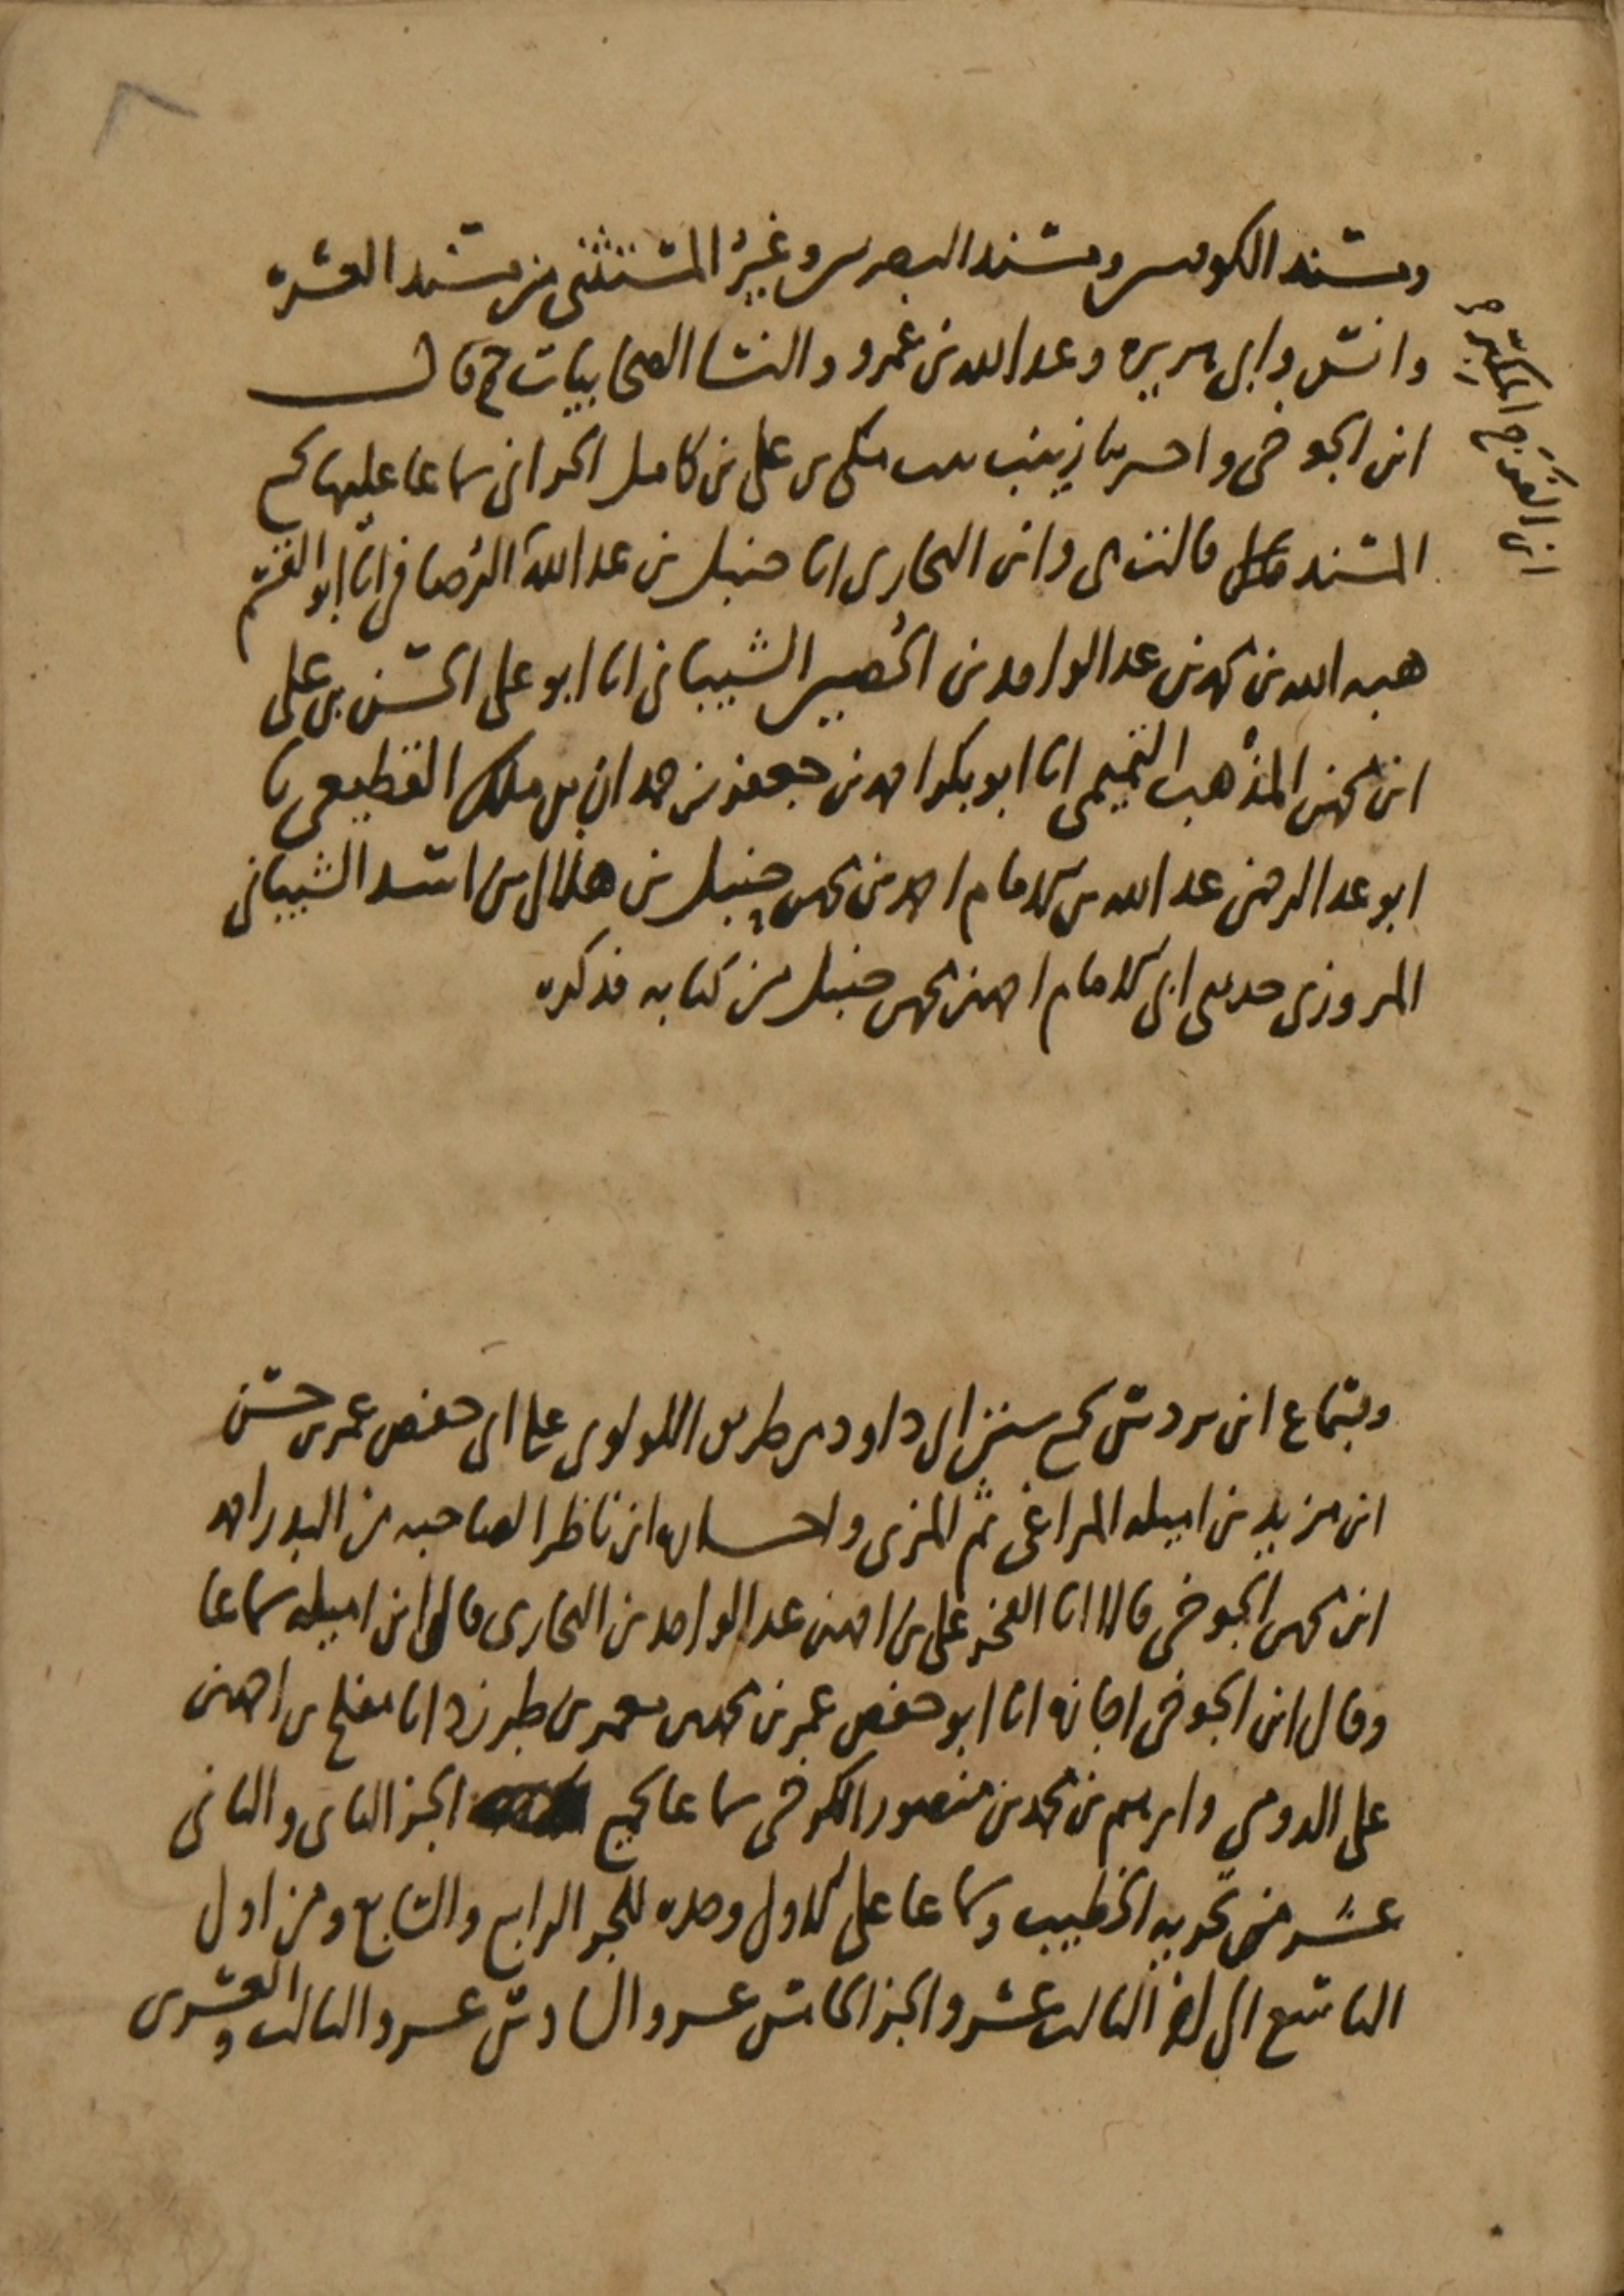 ومسند الكوفيين ومسند البصريين وغير المستثنى من مسند العشرة
وانس وابي هريرة وعبد الله بن عمرو والنسا الصحابيات ح قال
ابن الجوخي واخبرتنا زينب بنت مكي بن علي بن كامل الحراني سماعا عليها لجميع
المسند قالت هي وابن البخاري انا حنبل بن عبد الله الرصافي انا ابو القسم
هبة الله بن محمد بن عبد الواحد بن الحصين الشيباني انا ابو علي الحسن بن علي
ابن محمد بن المذهب التميمي انا ابو بكر احمد بن جعفر بن حمدان بن ملك القطيعي نا
ابو عبد الرحمن عبد الله بن الامام احمد بن محمد بن حنبل بن هلال بن اسد الشيباني
المروزي حدثني ابي الامام احمد بن محمد بن حنبل من كتابه فذكره
ابن الفرج المكبر
وبسماع ابن بردس لجميع سنن ابي داود من طريق اللولوي على ابي حفص عمر بن حسن
ابن مزيد بن اميله المراغي ثم المزي و ابن ناظر الصاحبه من البدر احمد
ابن محمد بن الجوخي قالا انا الفخر علي بن احمد بن عبد الواحد بن البخاري قال ابن اميله سماعا
وقال ابن الجوخي اجازه انا ابو حفص عمر بن محمد بن معمر بن طبرزد انا مفلح بن احمد بن
علي الدومي وابرهيم بن محمد بن منصور الكرخي سماعا لجميع الجز الثاني والثاني
عشر من تجزية الخطيب وسماعا على الاول وحده للجز الرابع والسابع ومن اول
التاسع الى اخر الثالث عشر والجز الخامس عشر والسادس عشر والثالث والعشرين